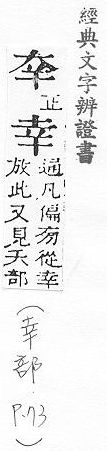 經典文字辨證書
㚔正
幸通凡偏旁從幸
放此又見夭部
(幸部 P.73)